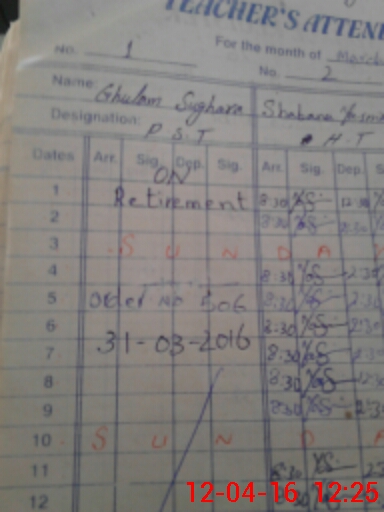 TEACHER'S ATTEN
No. 1 For the month of March
No. 2
Name Ghulam Sughara Shabana Yasmin
Designation: P.S.T H.T
Dates Arr. Sig. Dep. Sig. Arr. Sig. Dep. S
ON
1 Retirement 8:30 12:30
2 8:30
3 S U N D A
4 8:30 2:30
5 Order No 506 8:30 2:30
6 31-03-2016 8:30 2:30
7 8:30
8 8:30
9 8:30 2:30
10 S U N D A
11 8:30
12 8:30
12-04-16 12:25